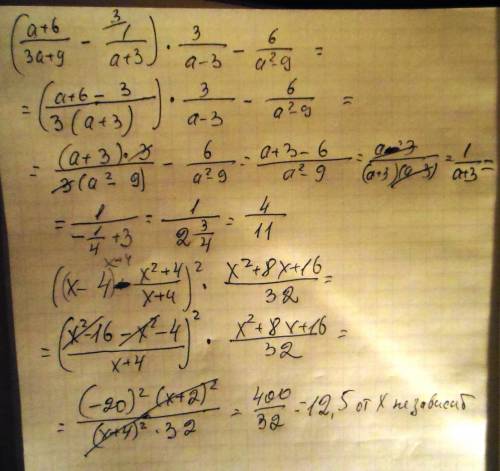 ((a+6)/(3a+9) − 1/(a+3)^3) · 3/(a−3) − 6/(a²−9) =
= ((a+6−3)/(3(a+3))) · 3/(a−3) − 6/(a²−9) =
= ((a+3)·3)/(3(a²−9)) − 6/(a²−9) = (a+3−6)/(a²−9) = (a−3)/((a+3)(a−3)) = 1/(a+3) =
= 1/(−1/4+3) = 1/(2 3/4) = 4/11
((x−4)^x+4 − (x²+4)/(x+4))² · (x²+8x+16)/32 =
= ((x²−16−x²−4)/(x+4))² · (x²+8x+16)/32 =
= ((−20)² (x+2)²)/((x+4)²·32) = 400/32 = 12,5 от х не зависит